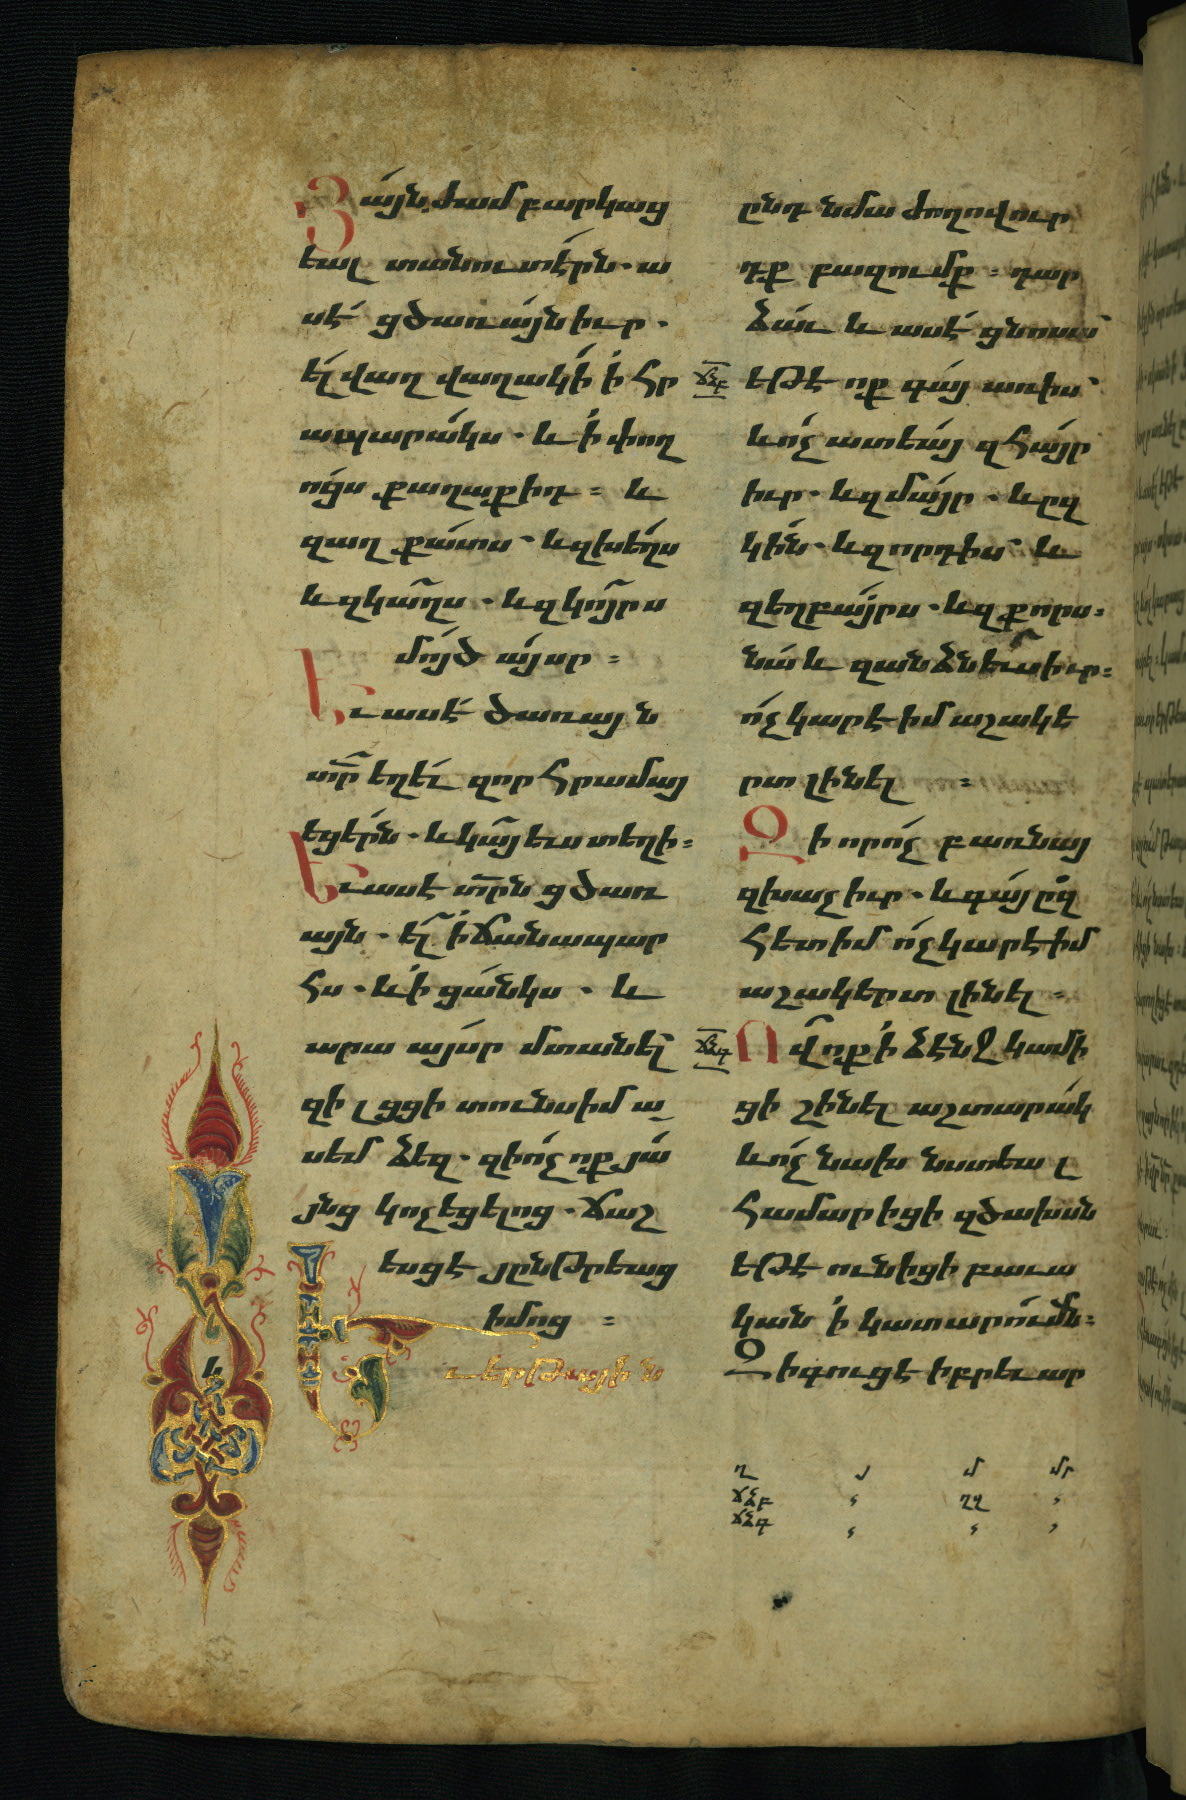 Յայն ժամ բարկաց
եալ տանուտէրն. ա
սէ ցծառայն իւր.
ել վաղ վաղակի ի հր
ապարակս. և ի փող
ոցս քաղաքիդ։ և
զաղքատս. և զխեղս
և զկաղս. և զկոյրս
մոյծ այսր։
Եւ ասէ ծառայն
տր եղեւ զոր հրամայ
եցերն. և կայ ևս տեղի։
Եւ ասէ տրն ցծառ
այն. ել ի ճանապար
հս. և ի ցանկս. և
արա այսր մտանել
զի լցցի տունս իմ ա
սեմ ձեզ. զի ոչ ոք յա
յնց կոչեցելոց. ճաշ
եսցէ յընթրեաց
իմոց։
Եւ երթային
ընդ նմա ժողովուր
դք բազումք։ դար
ձաւ և ասէ ցնոսա
ՃՁԲ եթէ ոք գայ առ իս
և ոչ ատեայ զհայր
իւր. և զմայր. և զ
կին. և զորդիս և
զեղբայրս. և զքորս։
նաև զանձն ևս իւր։
ոչ կարէ իմ աշակե
րտ լինել։
Զի որ ոչ բառնայ
զխաչ իւր. և գայ զ
հետ իմ ոչ կարէ իմ
աշակերտ լինել։
ՃՁԳ Ո վ ոք ի ձէնջ կամի
ցի շինել աշտարակ
և ոչ նախ նստեալ
համարիցի զծախսն
եթէ ունիցի բաւա
կան ի կատարումն։
Զի գուցէ իբրեւ ար
Ղ Յ Մ ՄՐ
ՃՁԲ ՂԶ
ՃՁԳ